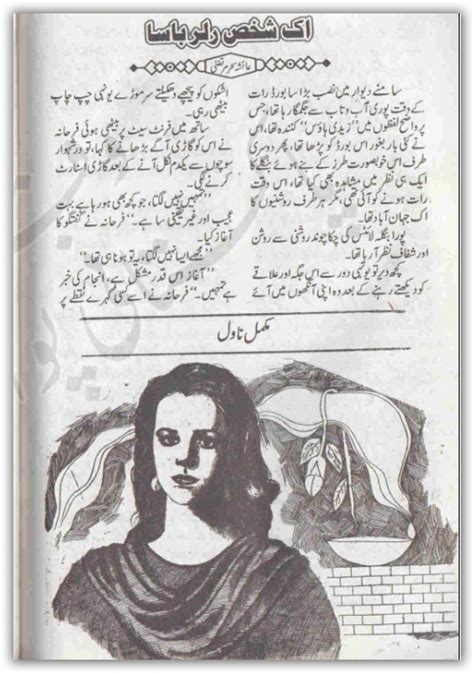 اک شخص دلربا سا
عائشہ سحر مرتضیٰ
سامنے دیوار میں نصب بڑا سا بورڈ رات
کے وقت پوری آب و تاب سے جگمگا رہا تھا، جس
پر واضح لفظوں میں "زیدی ہاؤس" کندہ تھا، اس
نے کئی بار بغور اس بورڈ کو پڑھا تھا، پھر دوسری
طرف اس خوبصورت طرز کے بنے ہوئے بنگلے کا
ایک ہی نظر میں مشاہدہ بھی کیا تھا، اس وقت
رات ہونے کو آئی تھی، مگر ہر طرف روشنیوں کا
اک جہان آباد تھا۔
پورا بنگلہ لائٹس کی چکا چوند روشنی سے روشن
اور شفاف نظر آ رہا تھا۔
کچھ دیر تو یونہی دور سے اس جگہ اور علاقے
کو دیکھتے رہنے کے بعد وہ اپنی آنکھوں میں آئے
اشکوں کو پیچھے دھکیلتے سر موڑے یونہی چپ چاپ
بیٹھی رہی۔
ساتھ میں فرنٹ سیٹ پر بیٹھی ہوئی فرحانہ
نے اس کو گاڑی آگے بڑھانے کا کہا، تو وہ شہوار
سوچوں سے یکدم نکل آنے کے بعد گاڑی اسٹارٹ
کرنے لگی۔
"تمہیں نہیں لگتا، جو کچھ بھی ہو رہا ہے بہت
عجیب اور غیر یقینی سا ہے۔" فرحانہ نے گفتگو کا
آغاز کیا۔
"مجھے ایسا نہیں لگتا، یہ تو ہونا ہی تھا۔"
"آغاز اس قدر مشکل ہے، انجام کی خبر
ہے تمہیں۔" فرحانہ نے اسے کسی گہرے نقطے پر
مکمل ناول